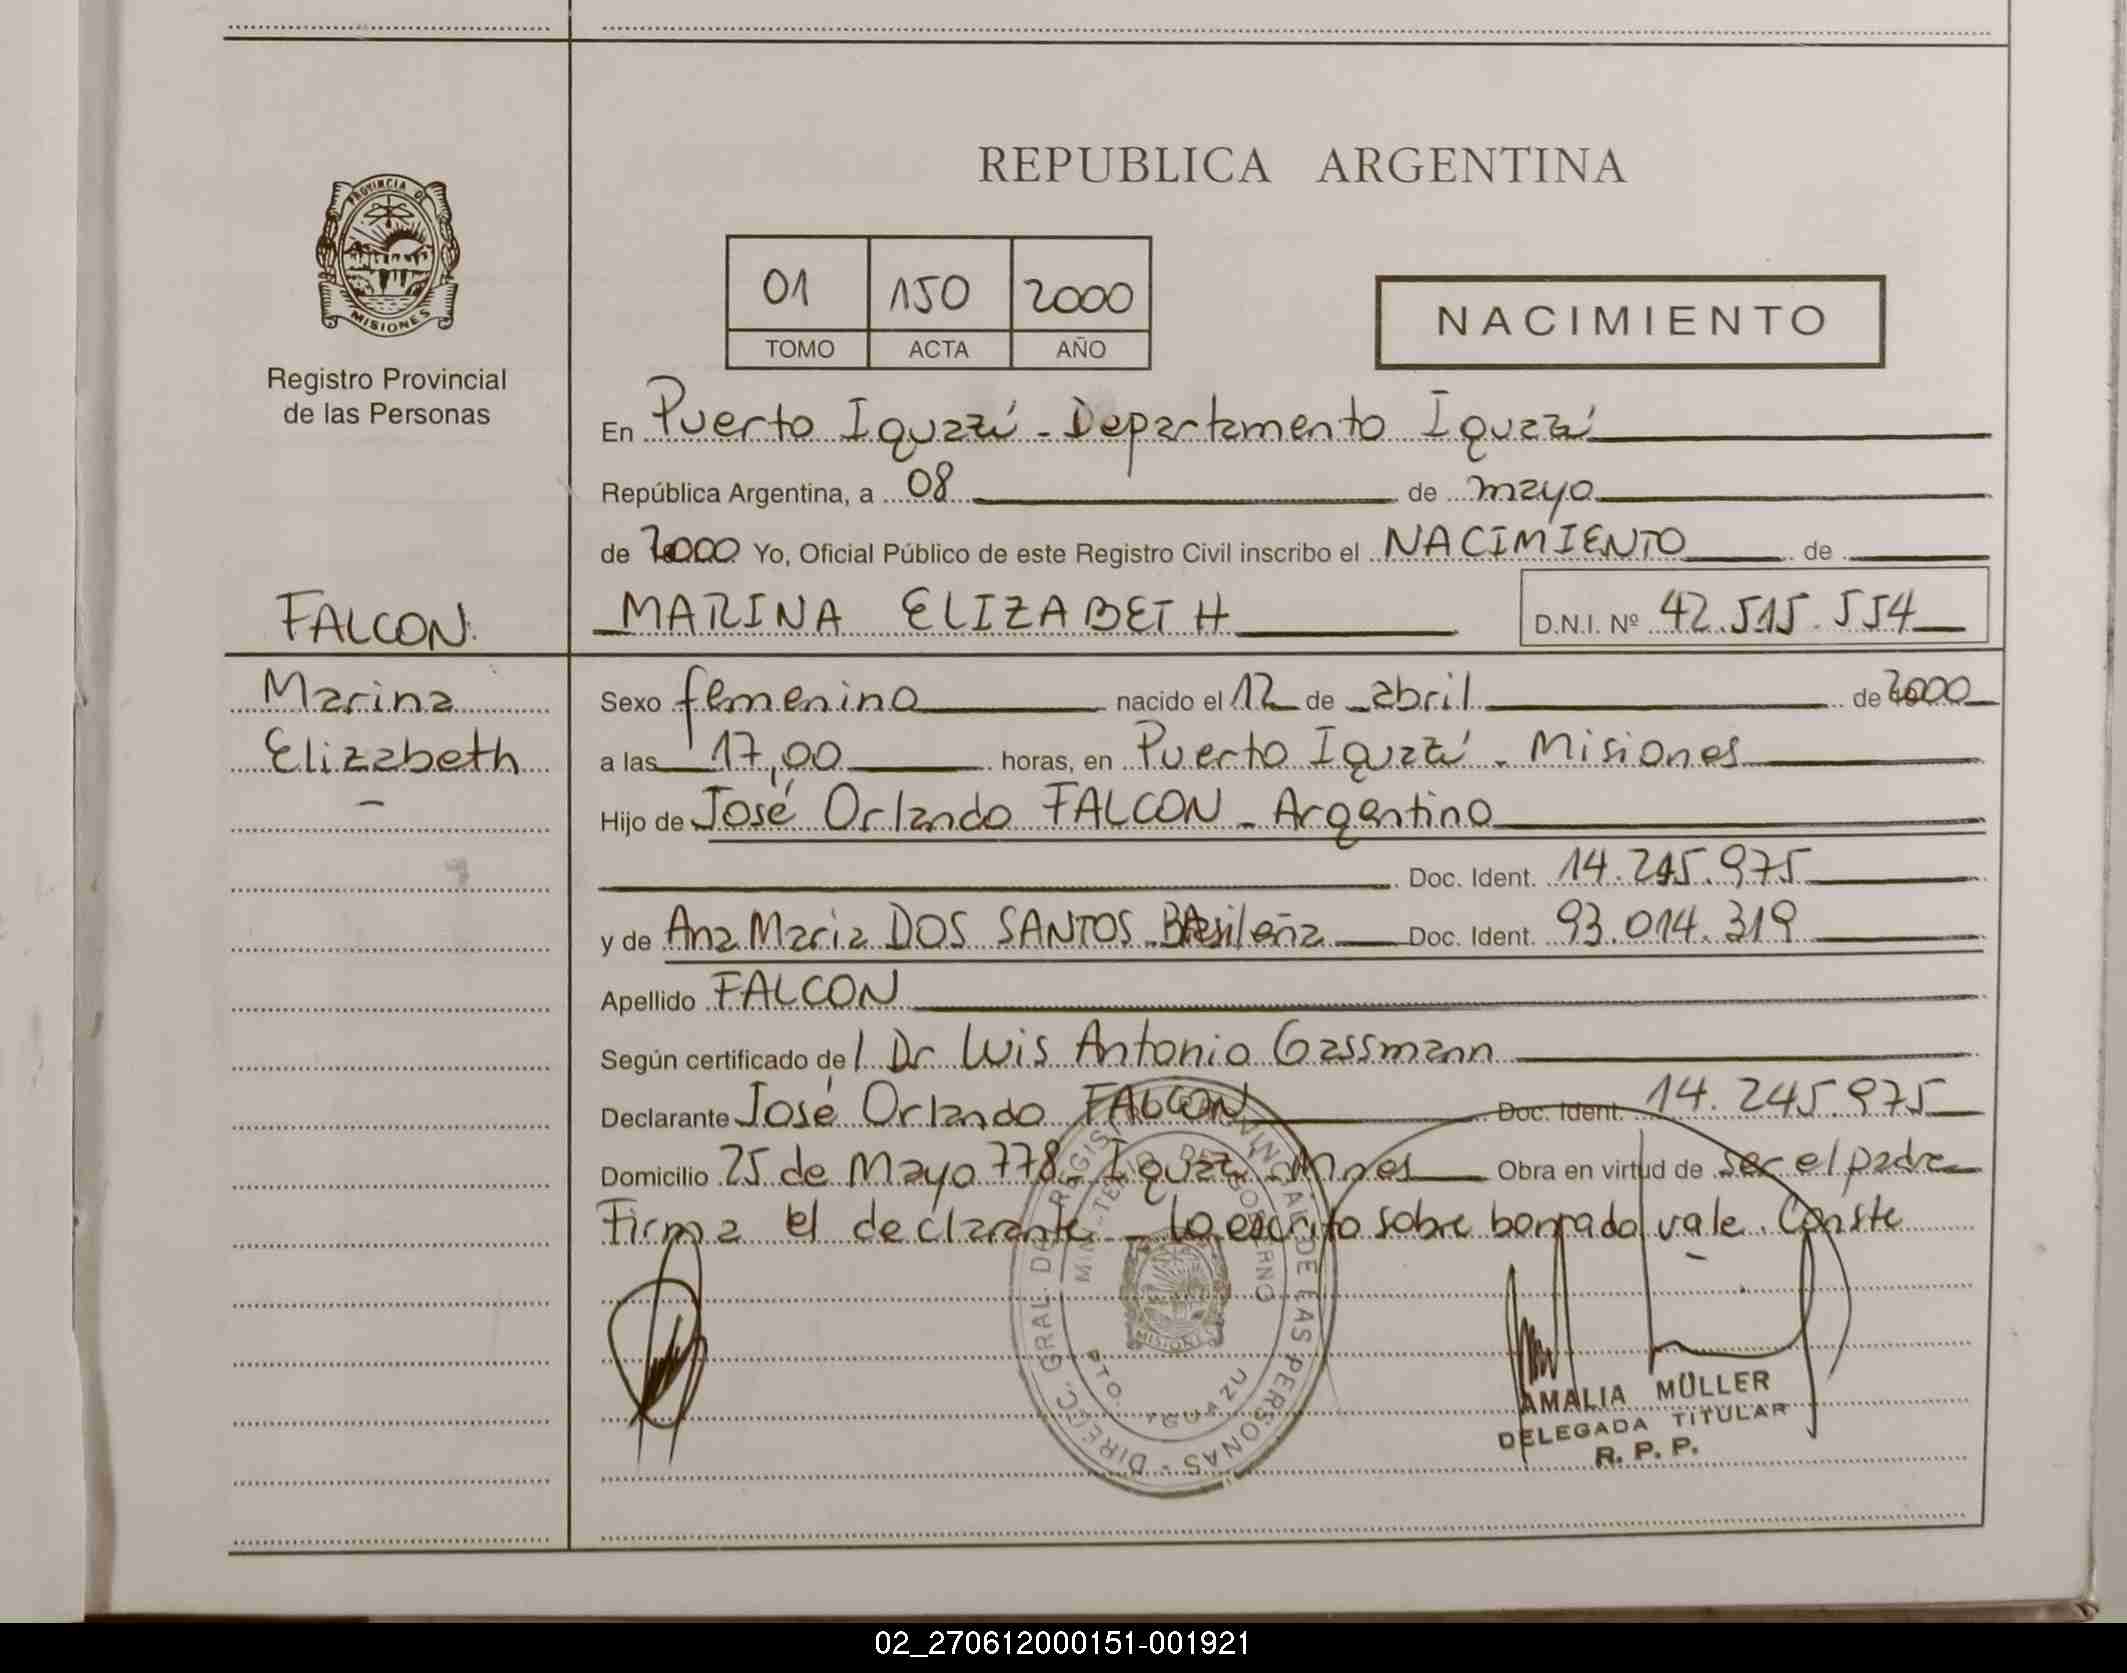 REPUBLICA ARGENTINA
PROVINCIA DE
MISIONES
Registro Provincial
de las Personas
01 150 2000
TOMO ACTA AÑO
NACIMIENTO
En Puerto Iguazú - Departamento Iguazú
República Argentina, a 08 de mayo
de 2000 Yo, Oficial Público de este Registro Civil inscribo el NACIMIENTO de
FALCON
MARINA ELIZABETH D.N.I. Nº 42.515.554
Marina
Elizabeth
Sexo femenino nacido el 12 de abril de 2000
a las 17,00 horas, en Puerto Iguazú - Misiones
Hijo de José Orlando FALCON - Argentino
Doc. Ident. 14.245.975
y de Ana Maria DOS SANTOS - Brasileña Doc. Ident. 93.014.319
Apellido FALCON
Según certificado de l Dr Luis Antonio Gassmann
Declarante José Orlando FALCON Doc. Ident. 14.245.975
Domicilio 25 de Mayo 778 Iguazú - Mnes Obra en virtud de ser el padre
Firma el declarante - Lo escrito sobre borrado vale. Conste
DIREC. GRAL. DE REGIS PROVINCIAL DE LAS PERSONAS
MINISTERIO DE GOBIERNO
MISIONES
PTO. IGUAZU
AMALIA MÜLLER
DELEGADA TITULAR
R. P. P.
02_270612000151-001921